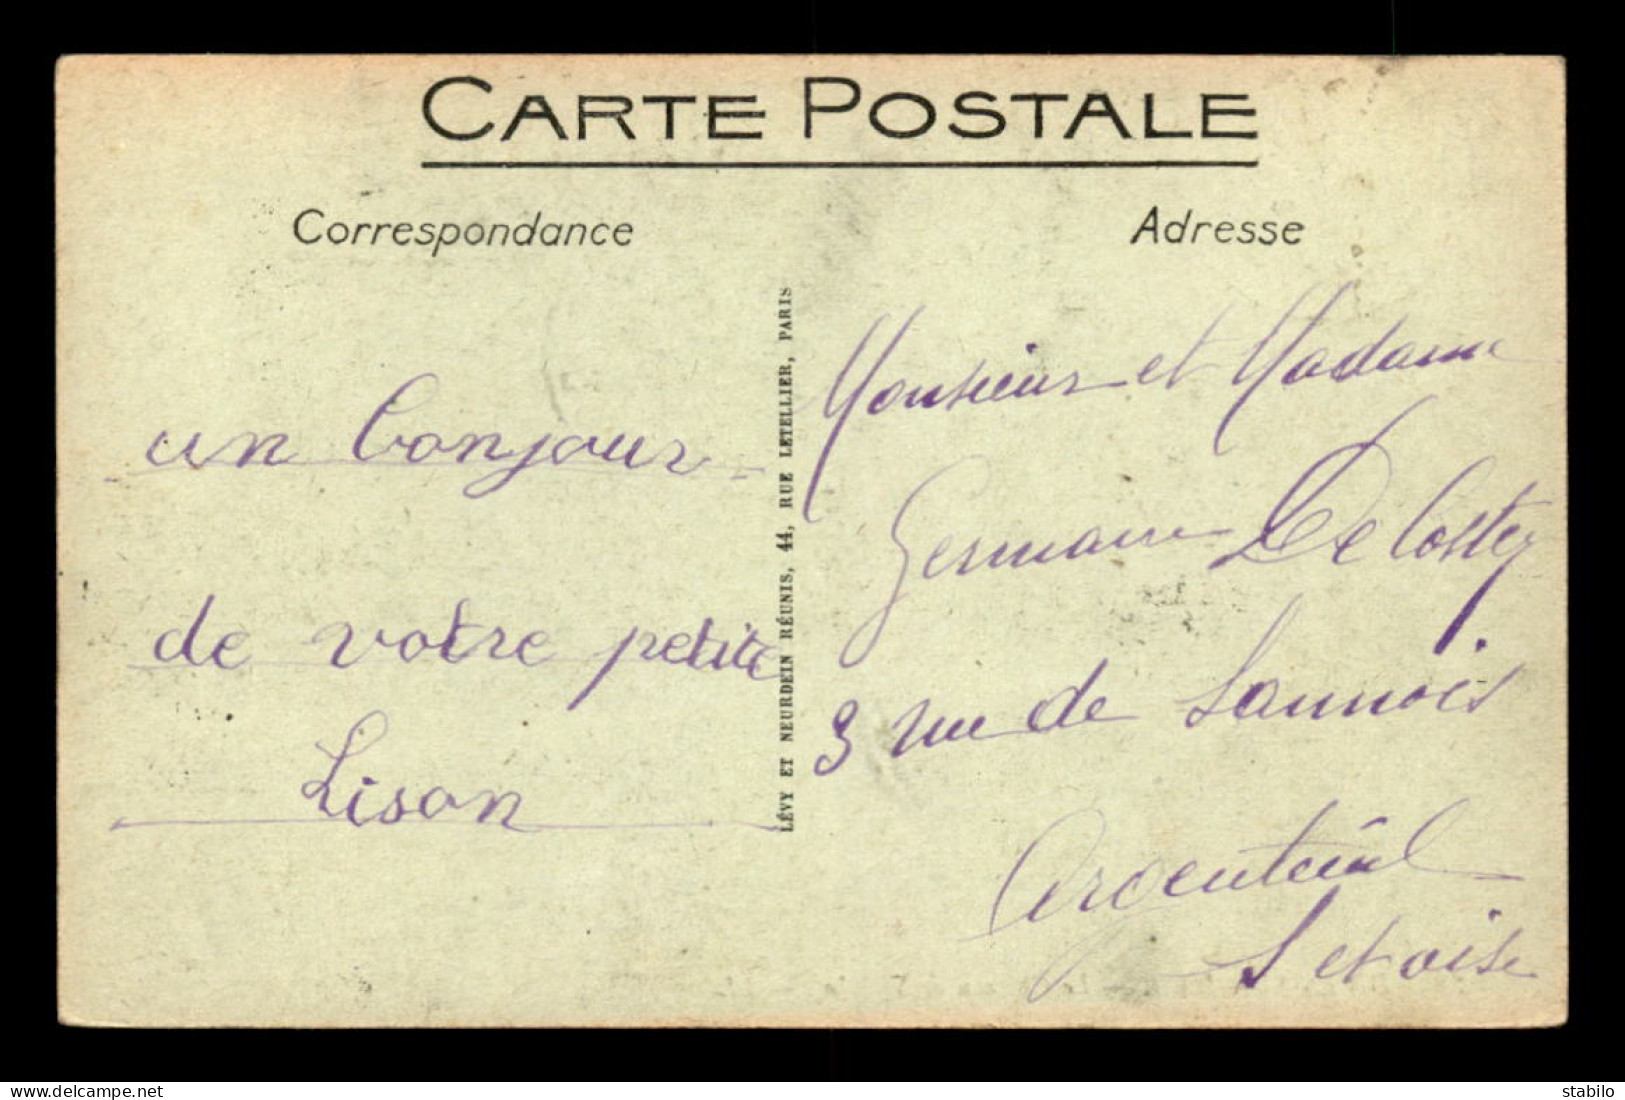 CARTE POSTALE
Correspondance
Adresse
un bonjour
de votre petite
Lison
LÉVY ET NEURDEIN RÉUNIS, 44, RUE LETELLIER, PARIS
Monsieur et Madame
Germain De Coster
3 rue de Sannois
Argenteuil
S et oise
www.delcampe.net
stabilo